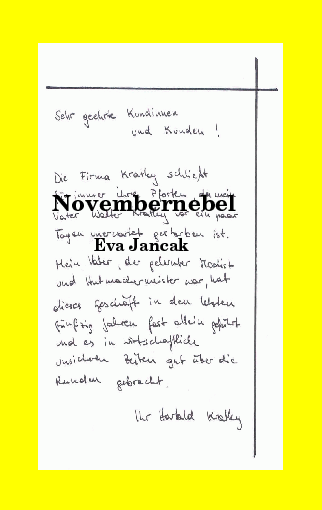 Sehr geehrte Kundinnen
und Kunden !
Die Firma Kratky schließt
für immer ihre Pforten, da mein
Novembernebel
Vater Walter Kratky vor ein paar
Tagen unerwartet gestorben ist.
Eva Jancak
Mein Vater, der gelernter
und Hutmachermeister war, hat
dieses Geschäft in den letzten
fünfzig Jahren fast allein geführt
und es in wirtschaftlich
unsicheren Zeiten gut über die
Runden gebracht.
Ihr Kratky